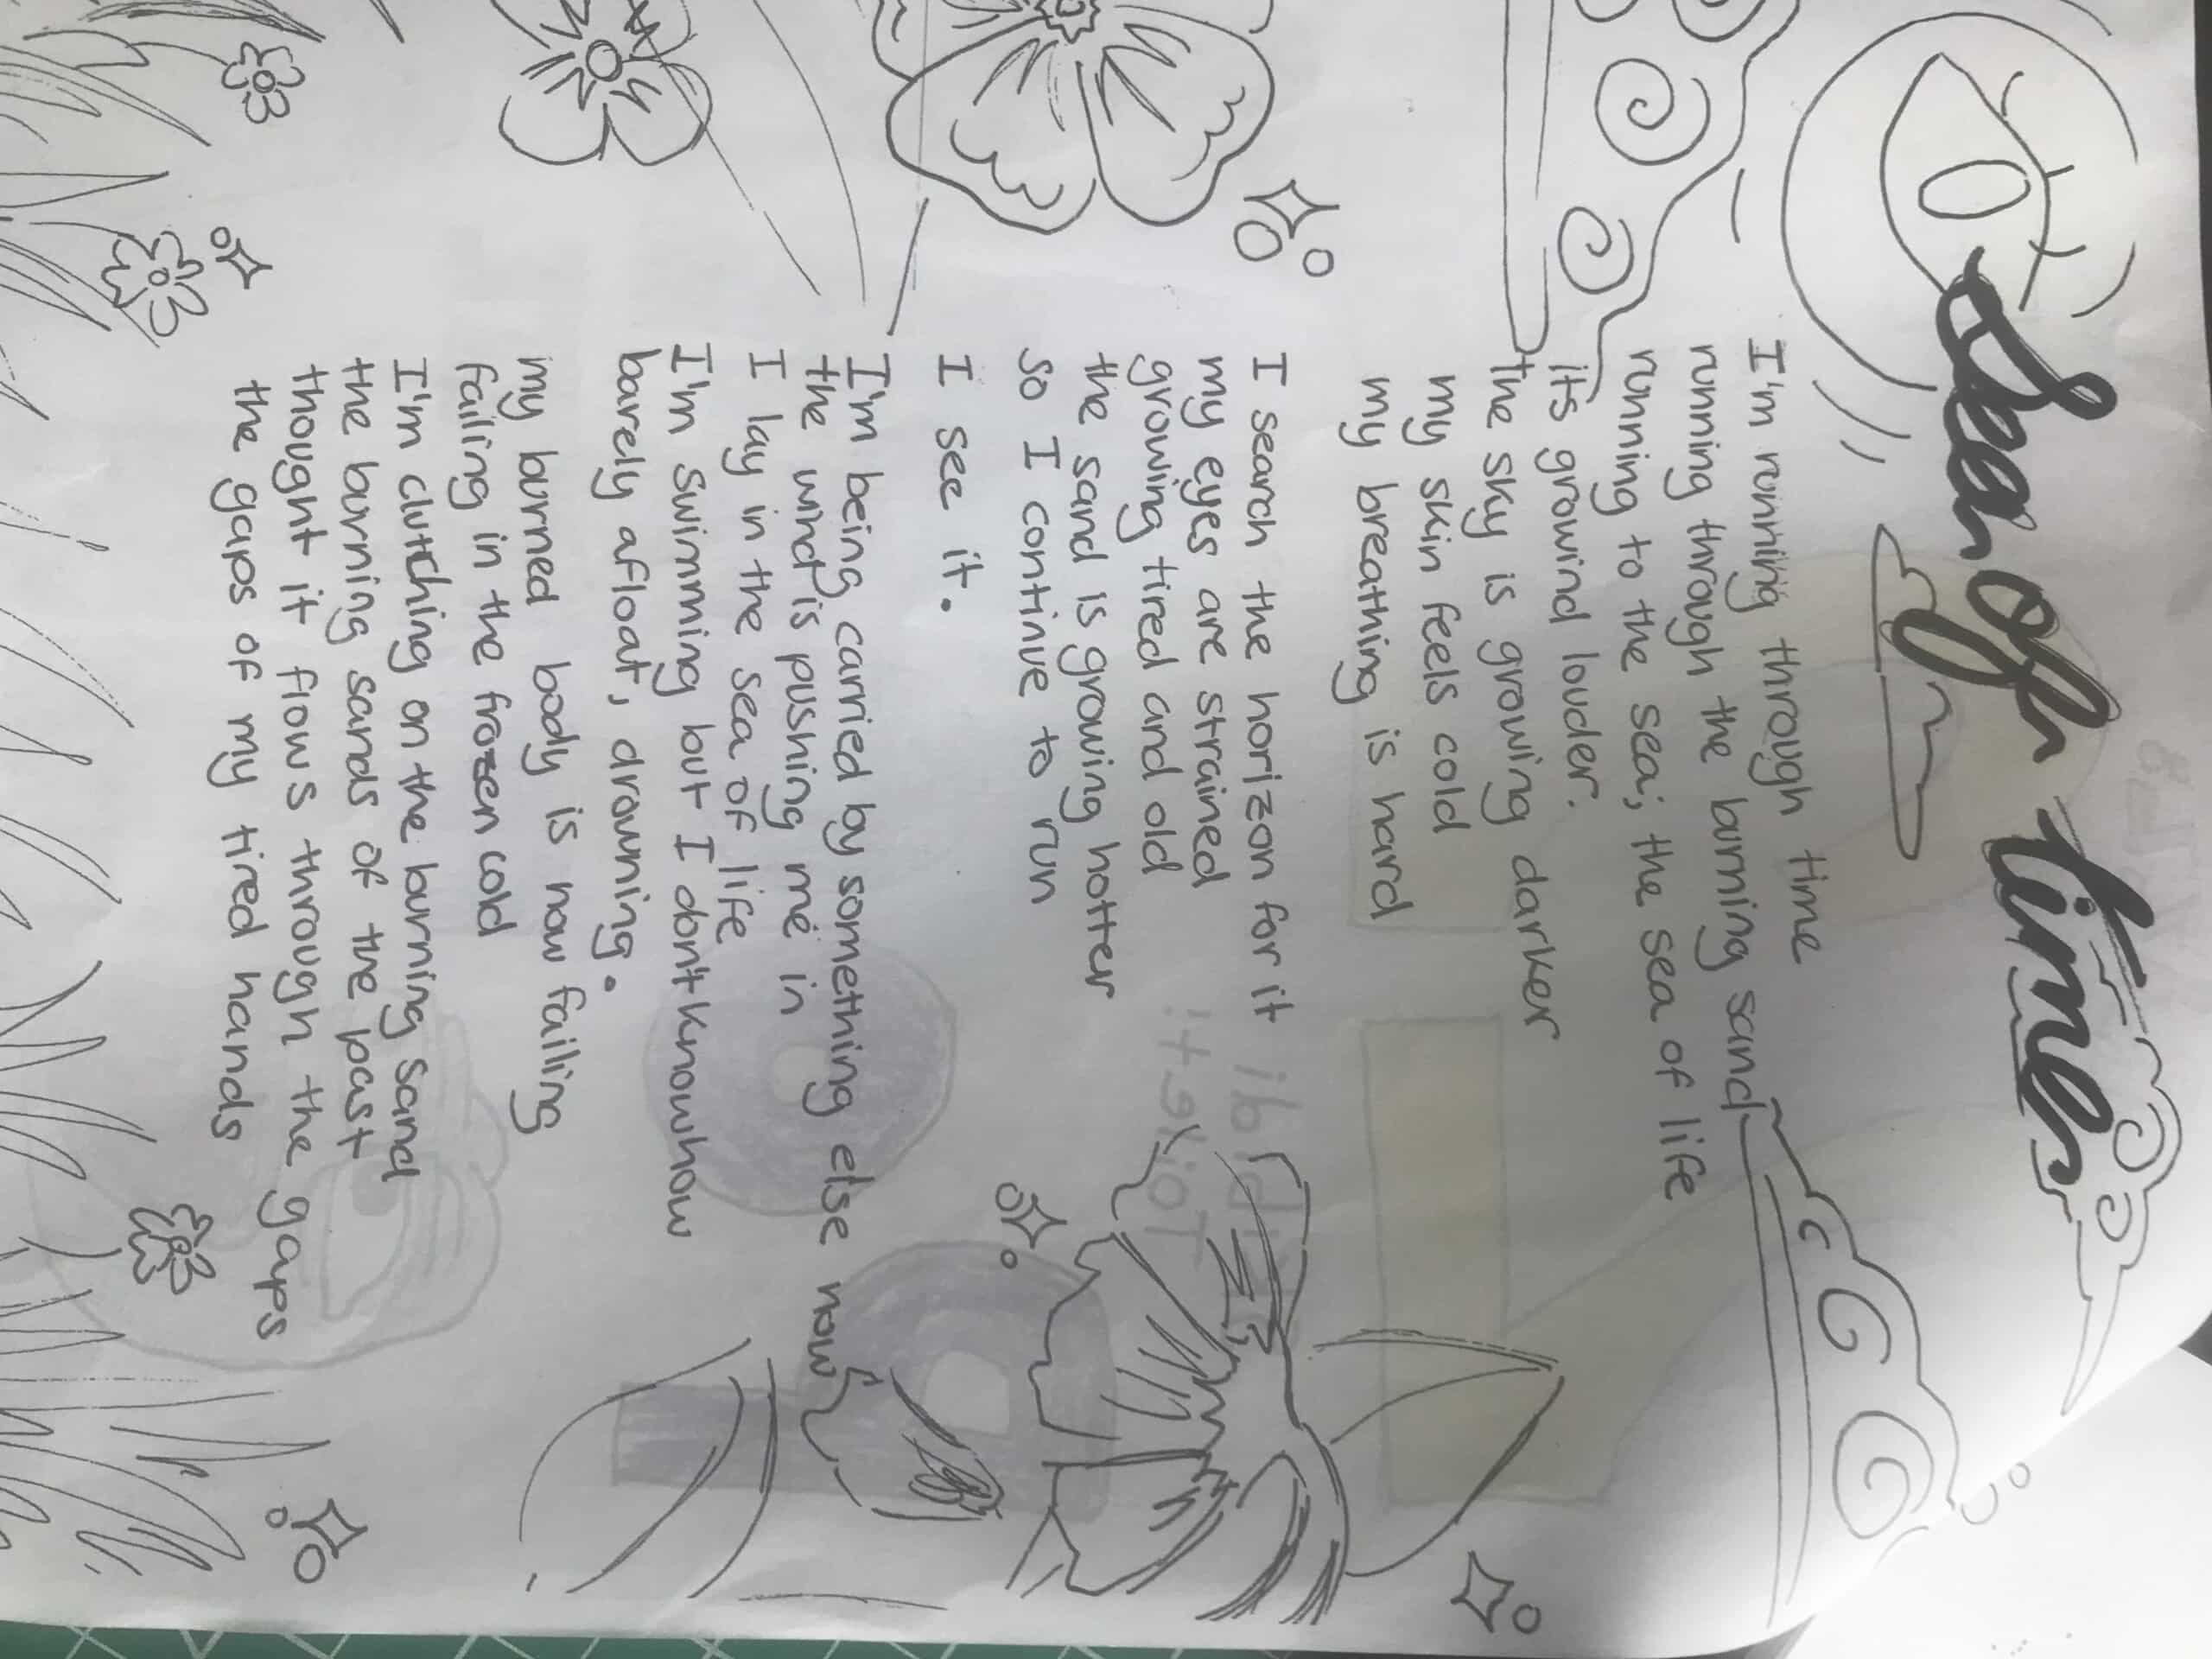 Sea of time
I'm running through time
running through the burning sand
running to the sea; the sea of life
it's growind louder.
the sky is growing darker
my skin feels cold
my breathing is hard
I search the horizon for it
my eyes are strained
growing tired and old
the sand is growing hotter
so I continue to run
I see it.
I'm being carried by something else now
the wind is pushing me in
I lay in the sea of life
I'm swimming but I don't know how
barely afloat, drowning.
my burned body is now failing
failing in the frozen cold
I'm clutching on the burning sand
the burning sands of the past
thought it flows through the gaps
the gaps of my tired hands